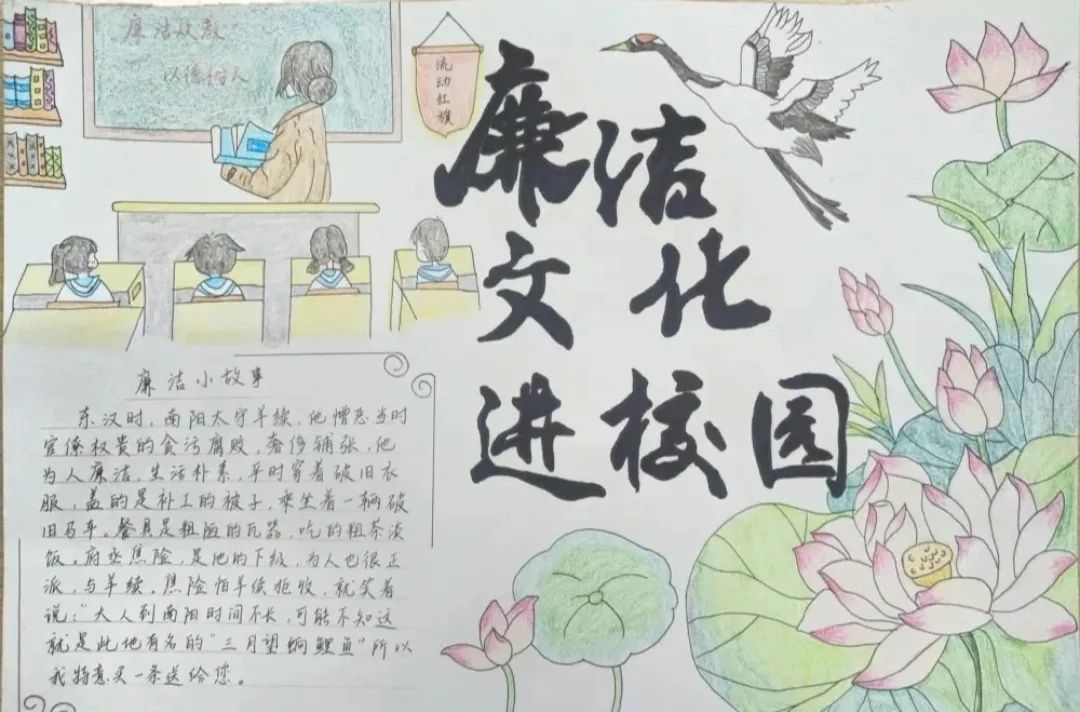 廉洁从教
以德树人
流动红旗
廉洁
文化
进校园
廉洁小故事
东汉时，南阳太守羊续，他憎恶当时
官僚权贵的贪污腐败，奢侈铺张，他
为人廉洁，生活朴素，平时穿着破旧衣
服，盖的是补丁的被子，乘坐着一辆破
旧马车。餐具是粗陋的瓦器，吃的粗茶淡
饭。府丞焦险，是他的下级，为人也很正
派，与羊续。焦险怕羊续拒收，就笑着
说："大人到南阳时间不长，可能不知这
就是此地有名的"三月望饷鲤鱼"所以
我特意买一条送给您。